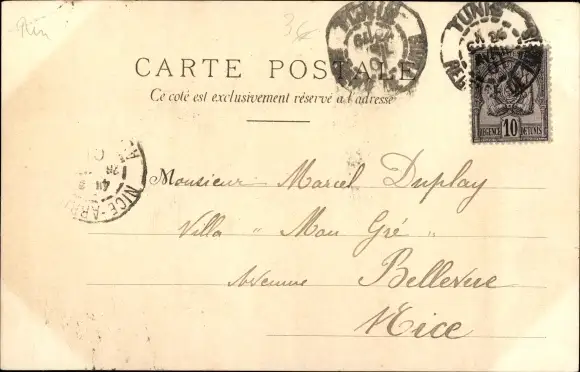 TUNIS
TUNIS
CARTE POSTALE
Ce coté est exclusivement réservé à l'adresse
REGENCE 10 DE TUNIS
NICE-ARR
Monsieur Marcel Duplay
Villa " Mon Gré "
Avenue Bellevue
Nice